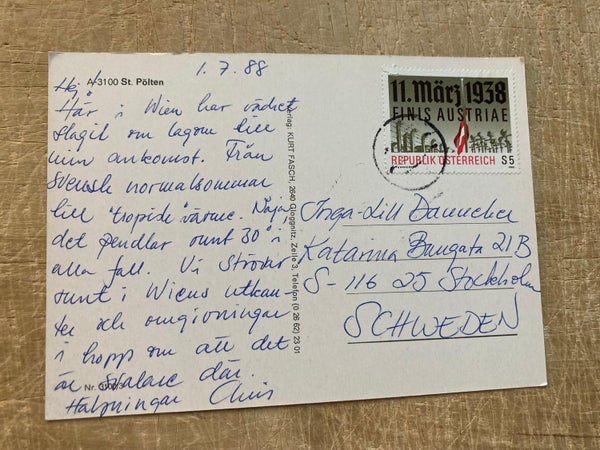 1.7.88
A-3100 St. Pölten
Hej!
Här i Wien har vädret
slagit om lagom till
min ankomst. Från
svensk normalsommar
till "tropisk" värme. Nåja
det pendlar runt 30° i
alla fall. Vi strövar
runt i Wiens utkan-
ter och omgivningar
i hopp om att det
är svalare där.
Hälsningar Chris
Nr.
Verlag: KURT FASCH, 2640 Gloggnitz, Zeile 3, Telefon (0 26 62) 23 01
11. März 1938
FINIS AUSTRIAE
REPUBLIK ÖSTERREICH S5
Inga-Lill
Katarina Bangata 21B
S-116 25 Stockholm
SCHWEDEN